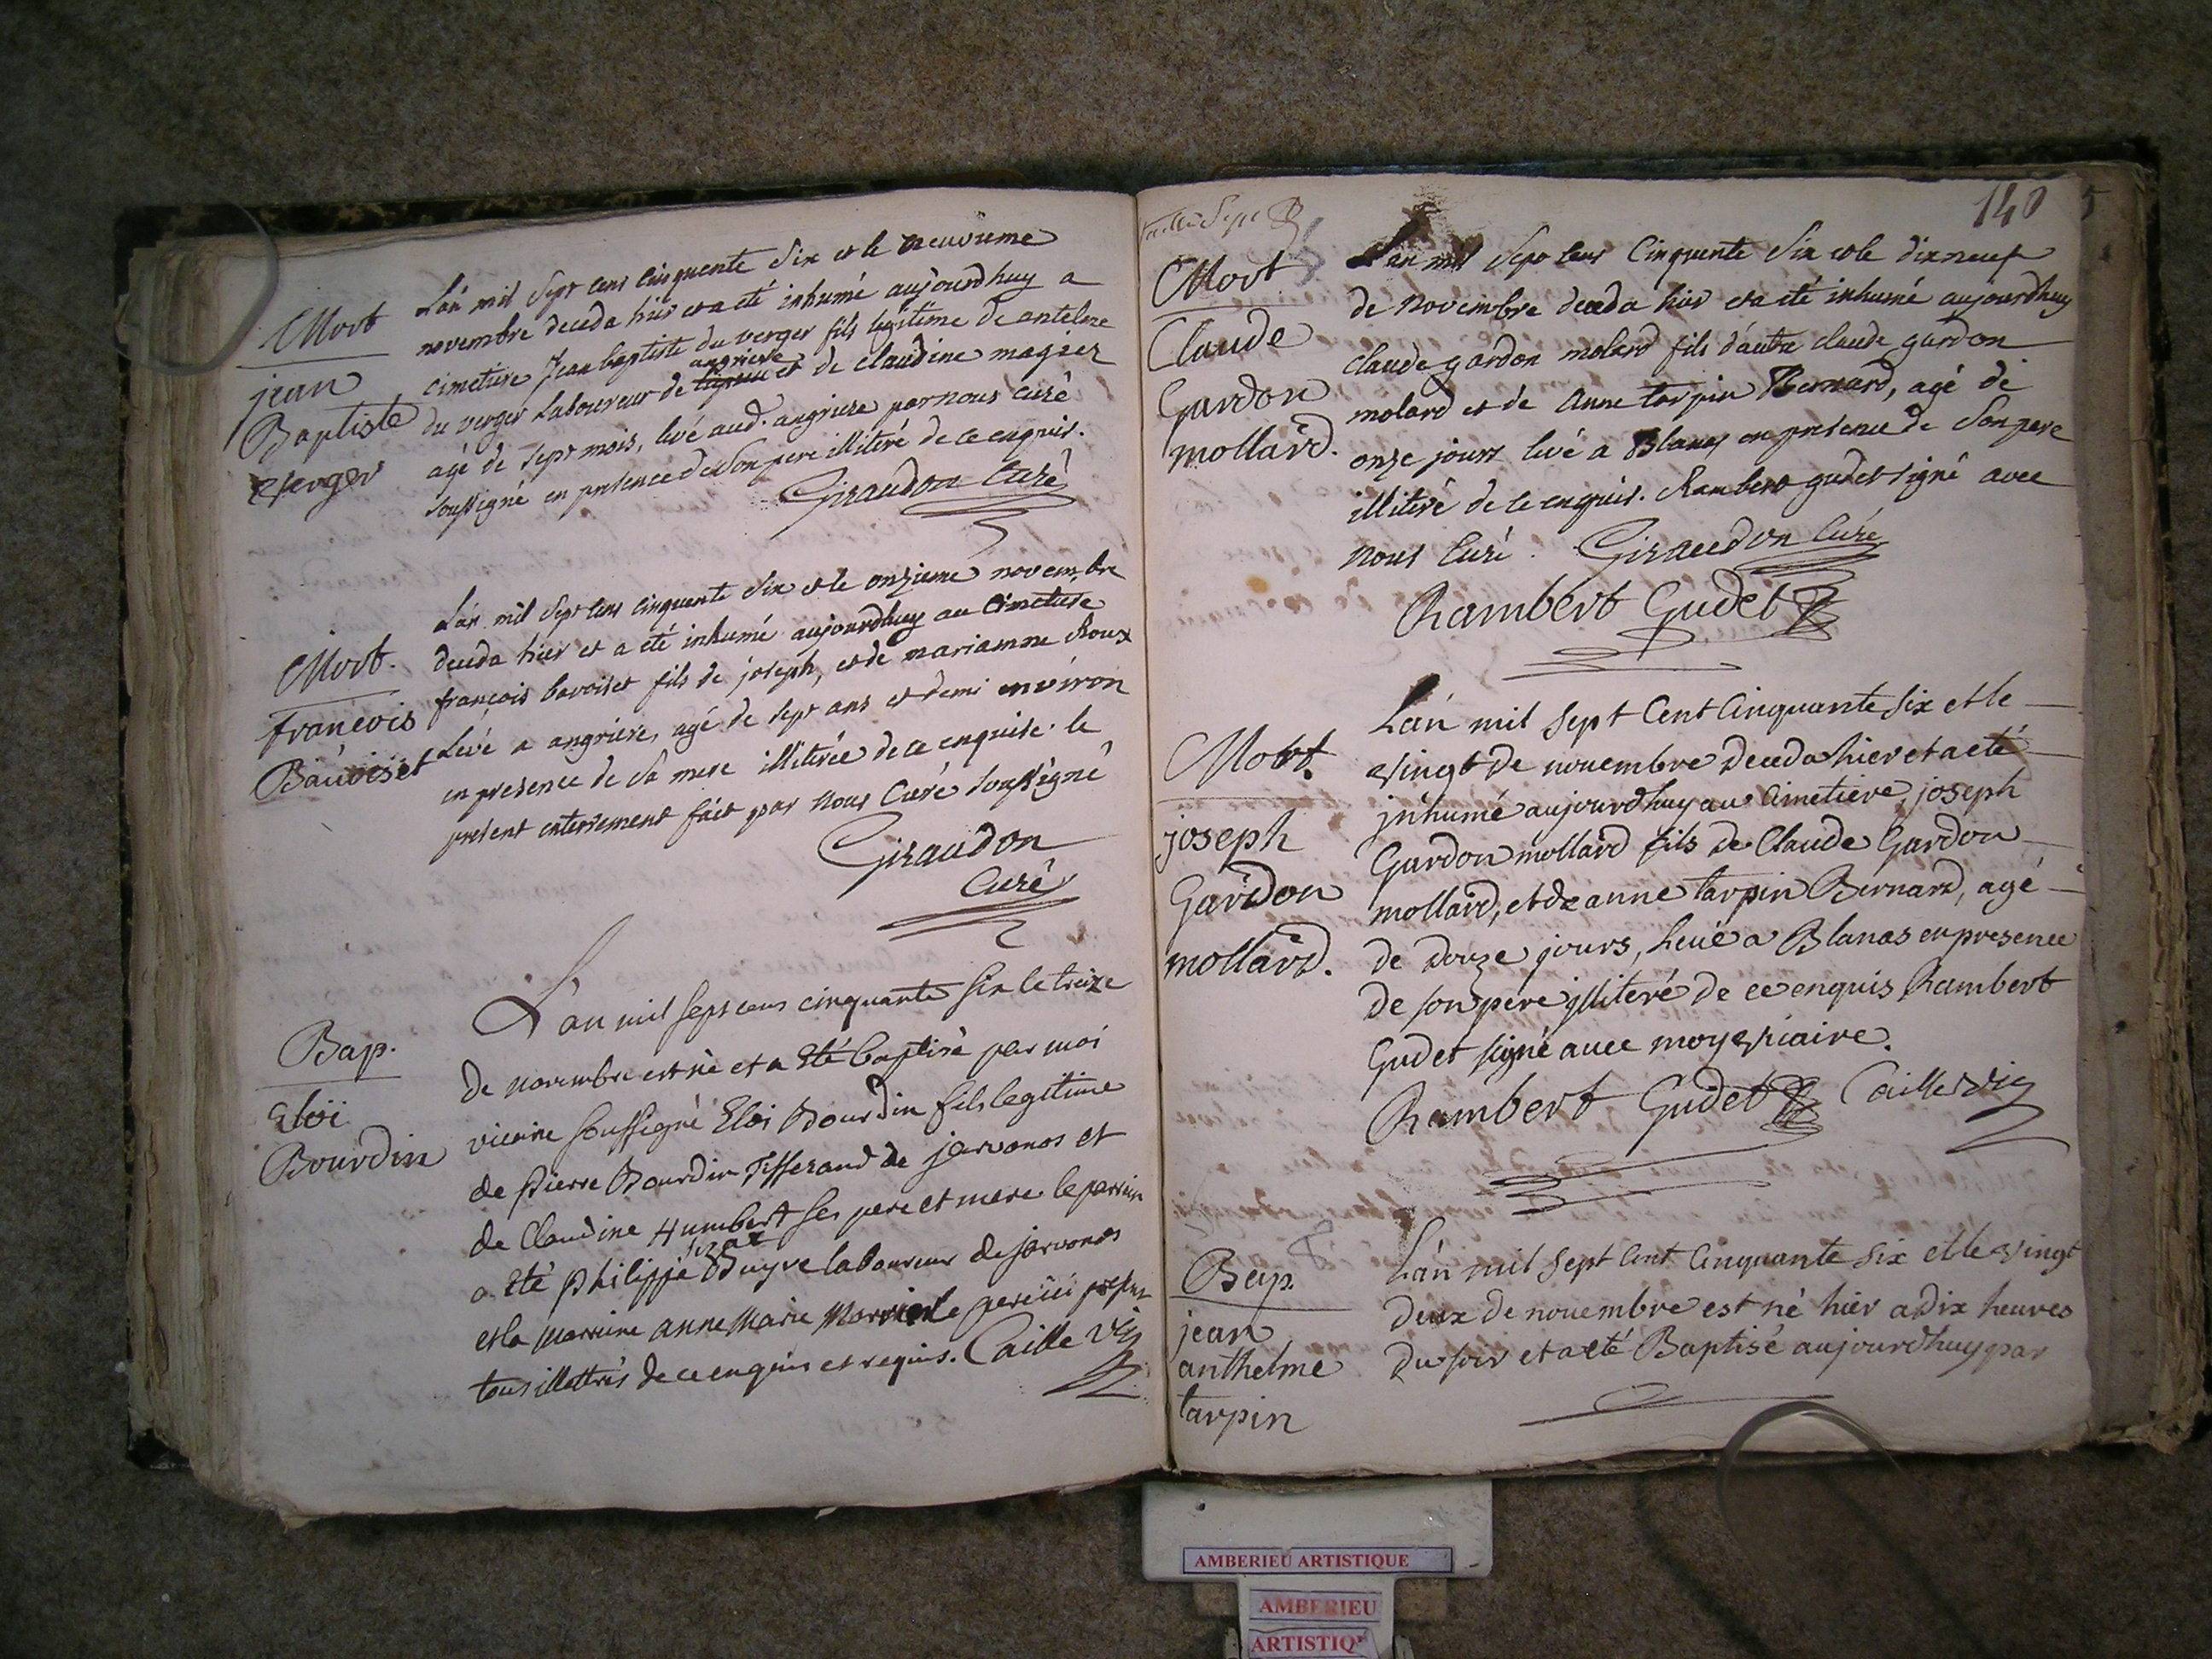 Mort
jean
Baptiste
verger
L'an mil sept cens cinquante six et le neuvieme
novembre deceda hier et a été inhumé aujourdhuy a
cimetiere Jean baptiste du verger fils legitime de antelme
angriere
du verger Laboureur de et de claudine magner
agé de sept mois, levé aud. angriere par nous curé
soussigné en presence de son pere illiteré de ce enquis.
Giraudon Curé
Mort.
francois
Bauoiset
L'an mil sept cens cinquante six et le onzieme novembre
deceda hier et a été inhumé aujourdhuy au Cimetiere
françois bavoiset fils de joseph, et de mariamne Roux
Levé a angriere, agé de sept ans et demi environ
en presence de sa mere illiterée de ce enquise. le
present enterrement fait par nous Curé soussigné
Giraudon
Curé
Bap.
Eloï
Bourdin
L'an mil sept cens cinquante six le treize
de novembre est né et a eté baptisé par moi
vicaire soussigné Eloi Bourdin fils legitime
de pierre Bourdin Tisserand de jarvonos et
de Claudine Humbert ses pere et mere le parrin
a eté philippe Buyre laboureur de jarvonos
et la marrine anne Marie le pere ici present
tous illettrés de ce enquis et requis. Caille Vic
140
5
Mort
Claude
Gardon
mollard.
L'an mil sept cens Cinquante six et le dixneuf
de Novembre deceda hier et a été inhumé aujourdhuy
claude gardon molard fils d'autre claude gardon
molard et de Anne tarpin Bernard, agé de
onze jours levé a Blanas en presence de son pere
illiteré de ce enquis. Rambert gudet signé avec
nous Curé. Giraudon Curé
Rambert Gudet
Mort.
joseph
Gardon
mollard.
L'an mil sept Cent Cinquante six et le
vingt de nouembre deceda hier et a eté
jnhumé aujourdhuy au Cimetiere, joseph
Gardon mollard fils de Claude Gardon
mollard, et de anne tarpin Bernard, agé
de douze jours, Leué a Blanas en presence
de son pere jlliteré de ce enquis, Rambert
Gudet signé auec moy vicaire.
Rambert Gudet Caille vic
Bap.
jean
anthelme
tarpin
L'an mil sept Cent Cinquante six et le vingt
deux de nouembre est né hier a dix heures
du soir et a eté Baptisé aujourdhuy par
AMBERIEU ARTISTIQUE
AMBERIEU
ARTISTIQ